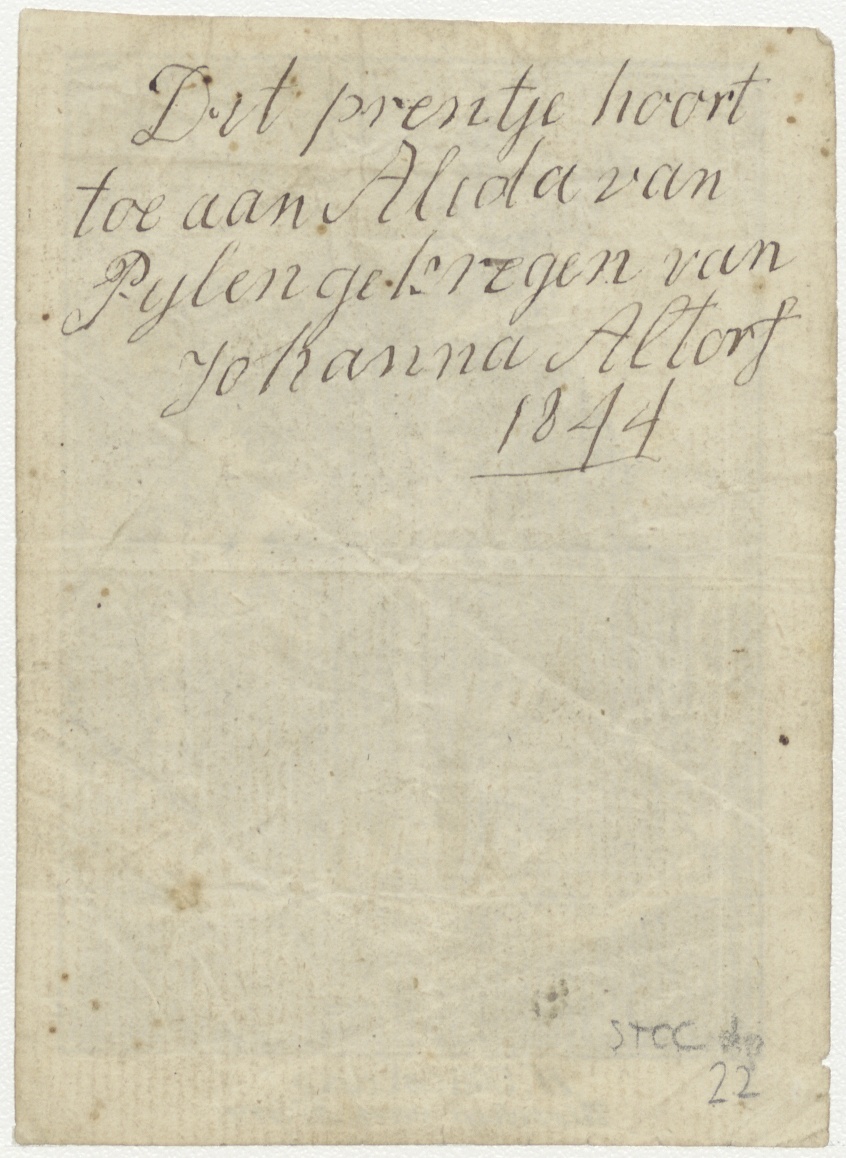 Dit prentje hoort
toe aan Alida van
Pylen gekregen van
Johanna Altorf
1844
STCC
22